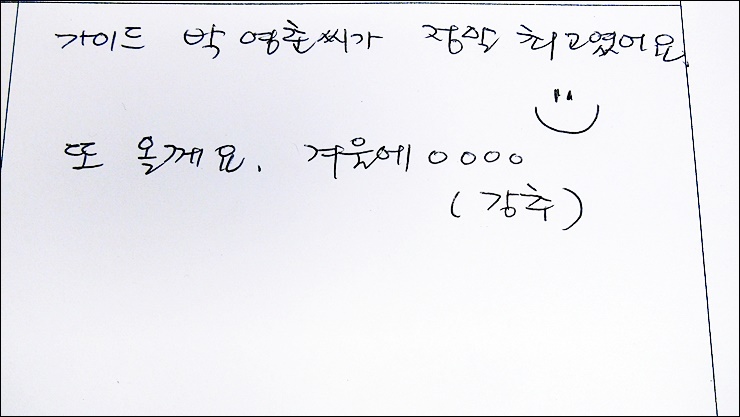 가이드 박영춘씨가 정말 최고였어요.
또 올게요. 겨울에 oooo
(강추)